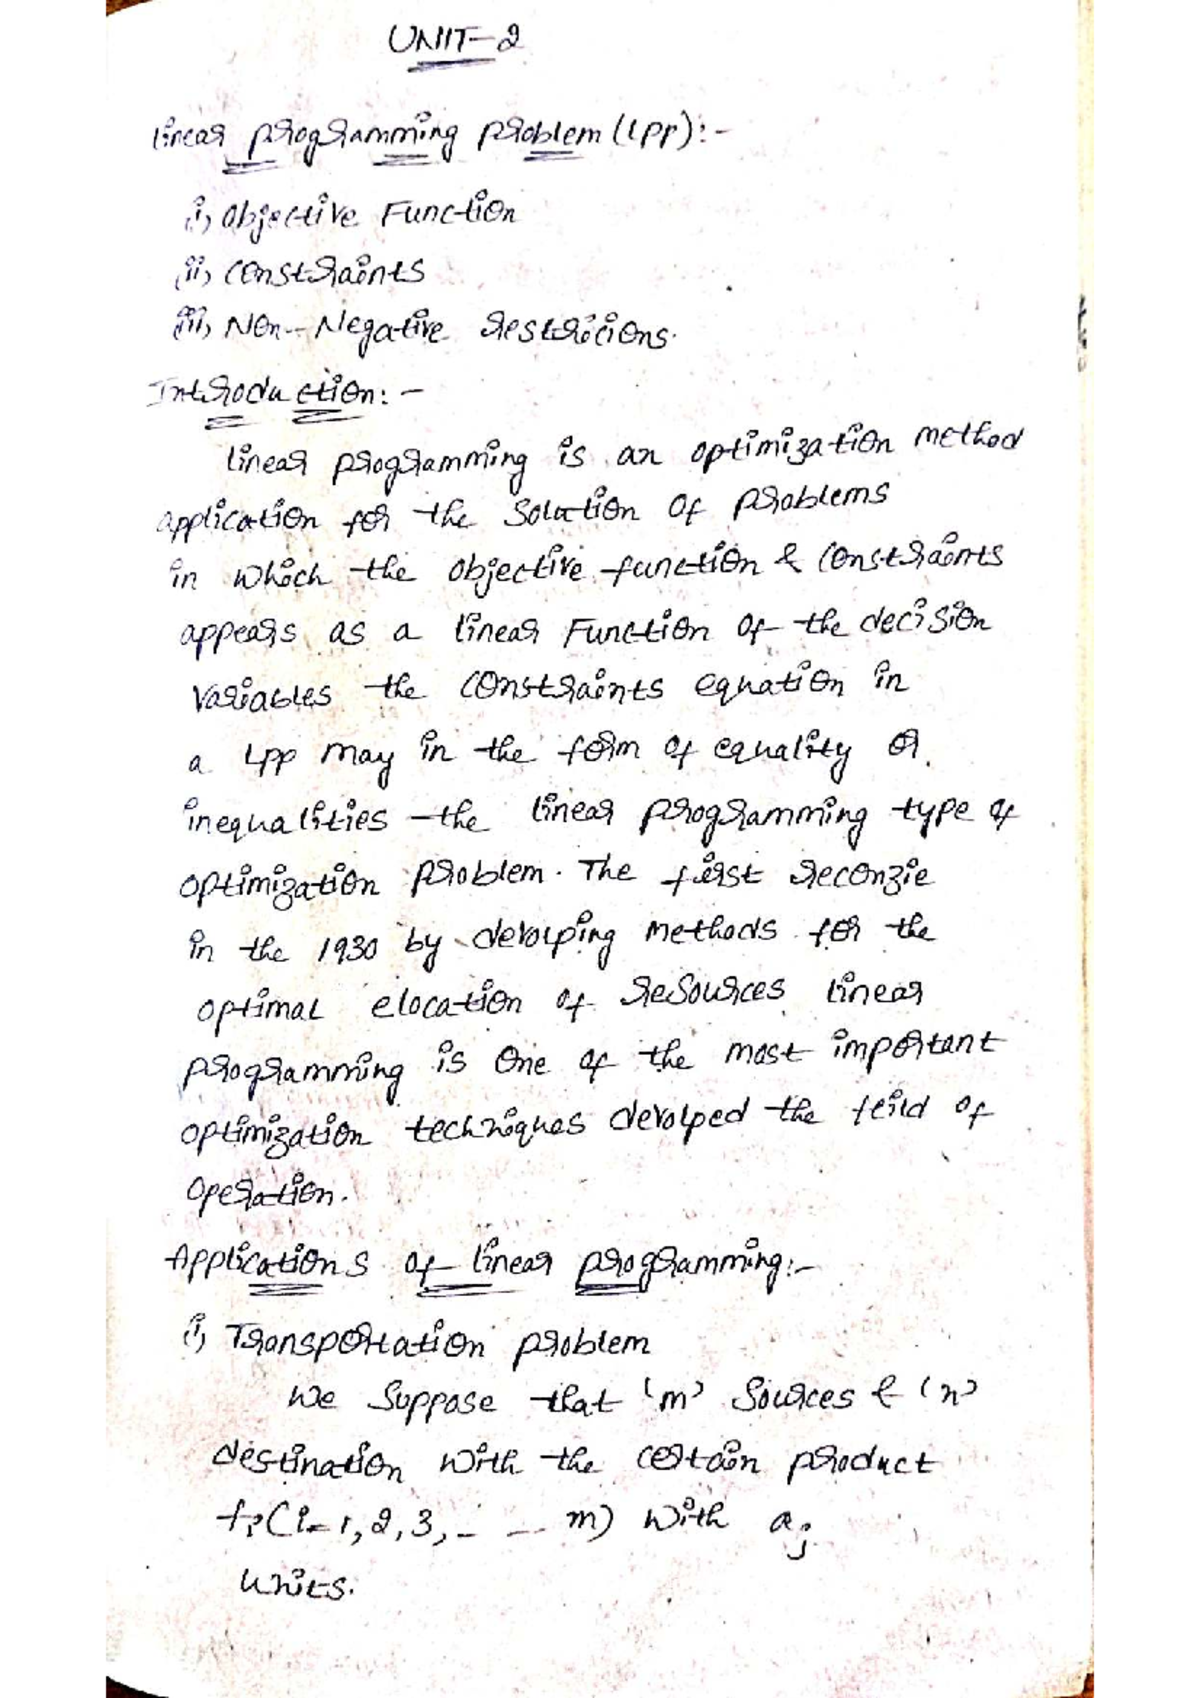 UNIT-2
linear programming problem (lpp):-
i, objective Function
ii, constraints
iii, Non-Negative restricions.
Introduction:-
linear programming is an optimization method
application for the solution of problems
in which the objective function & constraints
appears as a linear Function of the decision
variables the constraints equation in
a Lpp may in the form of equality or
inequalities the linear programming type of
optimization problem. The first reconzie
in the 1930 by devolping methods for the
optimal elocation of resources linear
programming is one of the most important
optimization techniques devolped the feild of
operation.
Applications of linear programming:-
i, Transportation problem
we suppose that 'm' sources & 'n'
destination with the certain product
fi(i=1,2,3,- -- m) with aj
units.